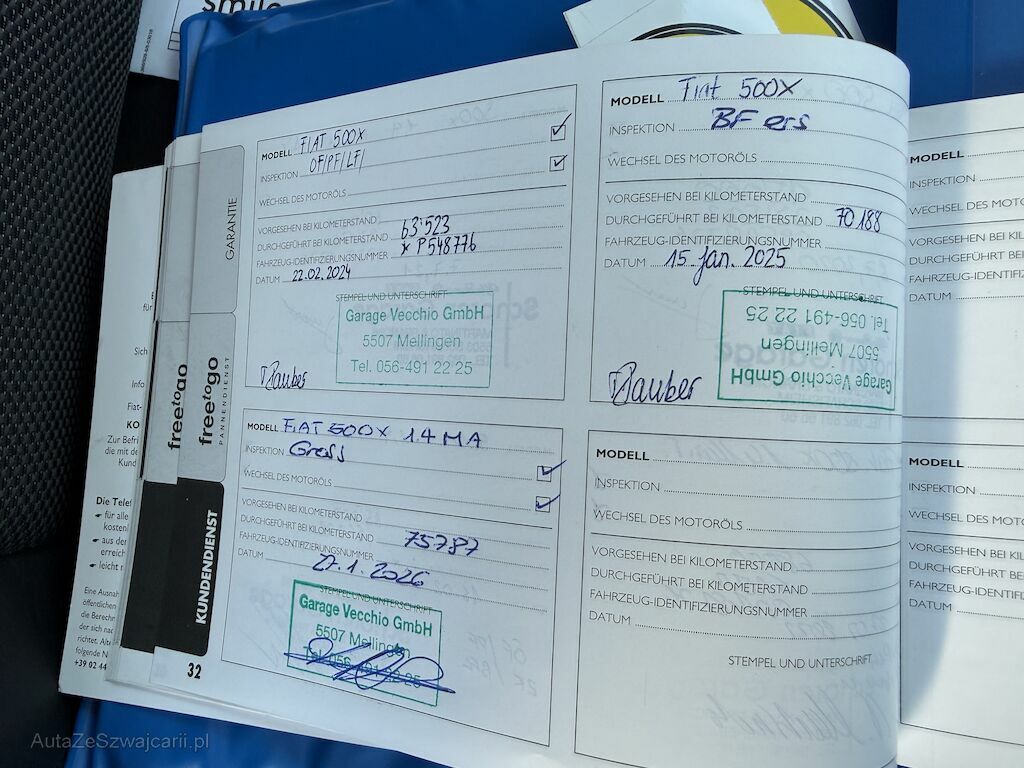 smile
GARANTIE
freetogo
freetogo
PANNENDIENST
KUNDENDIENST
32
Sich
Info
Fiat-
KO
Zur Befri
die mit de
Kund
Die Telef
für alle
kosten
aus der
erreich
leicht
Eine Ausnah
öffentlichen
die Berechn
der sich nac
richtet. Alte
folgende N
+39 02 44
MODELL FIAT 500X
INSPEKTION OF/PF/LF/
WECHSEL DES MOTORÖLS
VORGESEHEN BEI KILOMETERSTAND
DURCHGEFÜHRT BEI KILOMETERSTAND 63'523
FAHRZEUG-IDENTIFIZIERUNGSNUMMER * P548776
DATUM 22.02.2024
STEMPEL UND UNTERSCHRIFT
Garage Vecchio GmbH
5507 Mellingen
Tel. 056-491 22 25
MODELL Fiat 500X
INSPEKTION BF ers
WECHSEL DES MOTORÖLS
VORGESEHEN BEI KILOMETERSTAND
DURCHGEFÜHRT BEI KILOMETERSTAND 70188
FAHRZEUG-IDENTIFIZIERUNGSNUMMER
DATUM 15. Jan. 2025
STEMPEL UND UNTERSCHRIFT
Garage Vecchio GmbH
5507 Mellingen
Tel. 056-491 22 25
MODELL FIAT 500X 1.4 MA
INSPEKTION Gross
WECHSEL DES MOTORÖLS
VORGESEHEN BEI KILOMETERSTAND
DURCHGEFÜHRT BEI KILOMETERSTAND 75787
FAHRZEUG-IDENTIFIZIERUNGSNUMMER
DATUM 27.1.2026
STEMPEL UND UNTERSCHRIFT
Garage Vecchio GmbH
5507 Mellingen
Tel. 056-491 22 25
MODELL
INSPEKTION
WECHSEL DES MOTORÖLS
VORGESEHEN BEI KILOMETERSTAND
DURCHGEFÜHRT BEI KILOMETERSTAND
FAHRZEUG-IDENTIFIZIERUNGSNUMMER
DATUM
STEMPEL UND UNTERSCHRIFT
MODELL
INSPEKTION
WECHSEL DES MOTO
VORGESEHEN BEI KIL
DURCHGEFÜHRT BEI
FAHRZEUG-IDENTIFIZI
DATUM
MODELL
INSPEKTION
WECHSEL DES MOTO
VORGESEHEN BEI KIL
DURCHGEFÜHRT BE
FAHRZEUG-IDENTIFI
DATUM
AutaZeSzwajcarii.pl